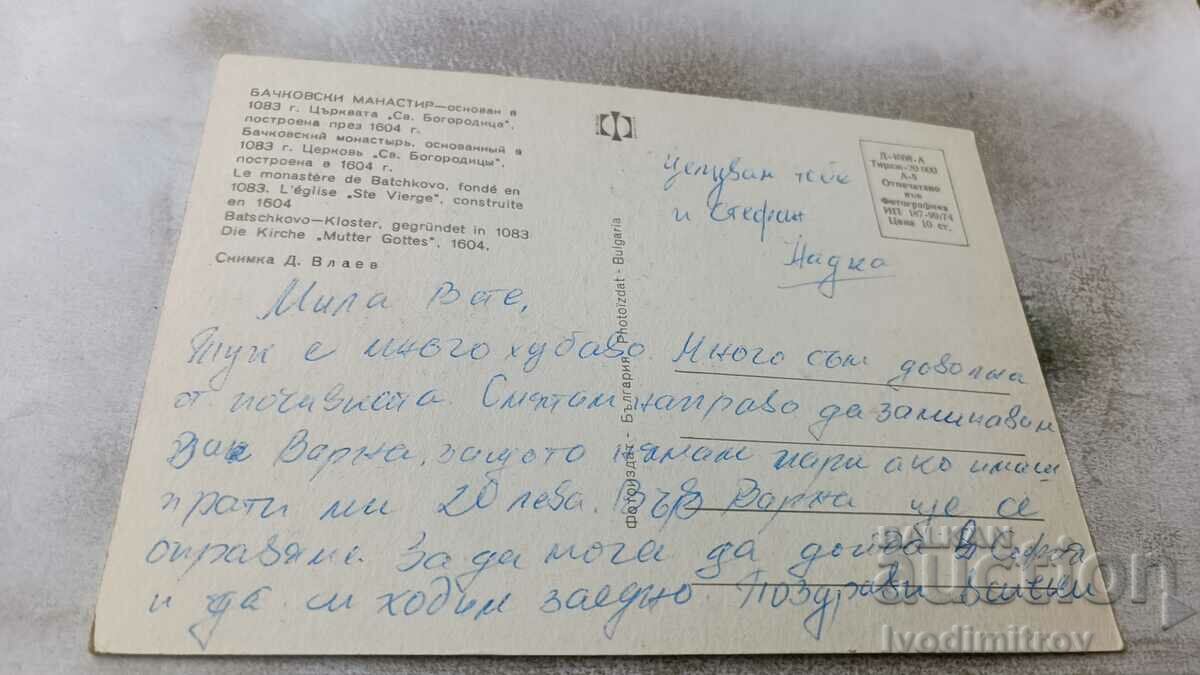 БАЧКОВСКИ МАНАСТИР—основан в
1083 г. Църквата „Св. Богородица",
построена през 1604 г.
Бачковский монастырь, основанный в
1083 г. Церковь „Св. Богородицы",
построена в 1604 г.
Le monastère de Batchkovo, fondé en
1083. L'église „Ste Vierge", construite
en 1604
Batschkovo—Kloster, gegründet in 1083
Die Kirche „Mutter Gottes", 1604.
Снимка Д. Влаев
Мила Вате,
Тук е много хубаво. Много съм доволна
от почивката. Смятам направо да заминавам
Варна, защото нямам пари ако имаш
прати ми 20 лева. Във Варна ще се
оправяме. За да мога да дойда
и да си ходим заедно. Поздрави всички
Целувам тебе
и Стефан
Надка
Фотоиздат - България, Photoizdat - Bulgaria
Тираж-20 000
А-5
Отпечатано
във
Фотографика
ИП 187-90/74
Цена 10 ст.
BALKAN
auction
Ivodimitrov